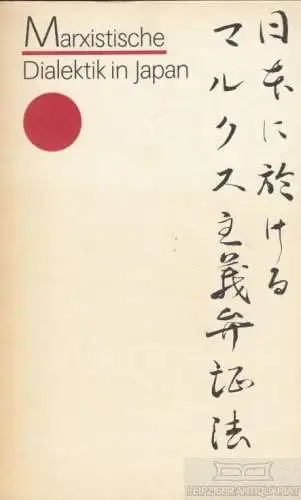 Marxistische
Dialektik in Japan
日本に於ける
マルクス主義弁証法
LEIPZIGER ANTIQUARIAT